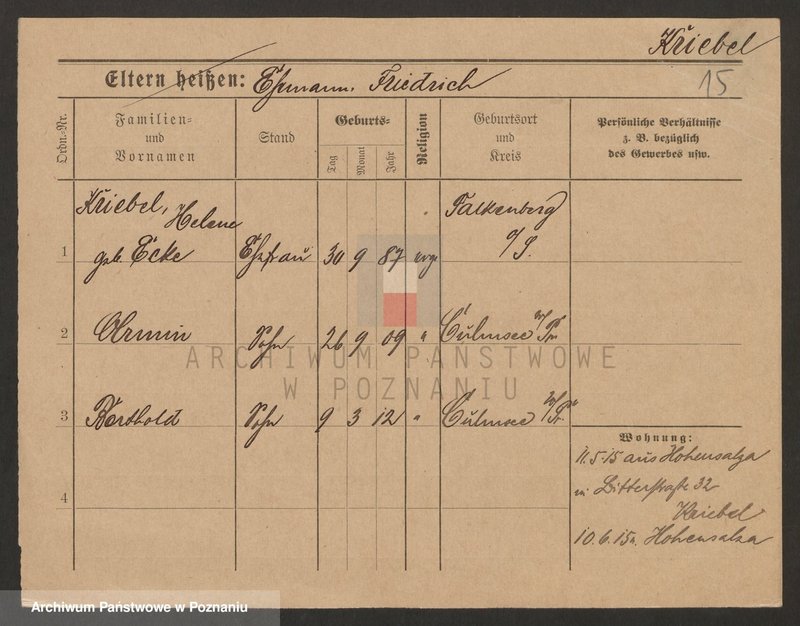 Kriebel
15
Eltern heißen: Ehemann Friedrich
Ordn.-Nr.
Familien- und Vornamen
Stand
Geburts-
Tag
Monat
Jahr
Religion
Geburtsort und Kreis
Persönliche Verhältnisse z. B. bezüglich des Gewerbes usw.
Kriebel, Helene
1 geb. Ecke Ehefrau 30 9 87 evg. Falkenberg O/S.
2 Armin Sohn 26 9 09 " Culmsee W/Pr.
3 Berthold Sohn 9 3 12 " Culmsee W/Pr.
4
Wohnung:
11.5.15 aus Hohensalza
in Bitterstraße 32
Kriebel
10.6.15 n. Hohensalza
ARCHIWUM PAŃSTWOWE
W POZNANIU
Archiwum Państwowe w Poznaniu